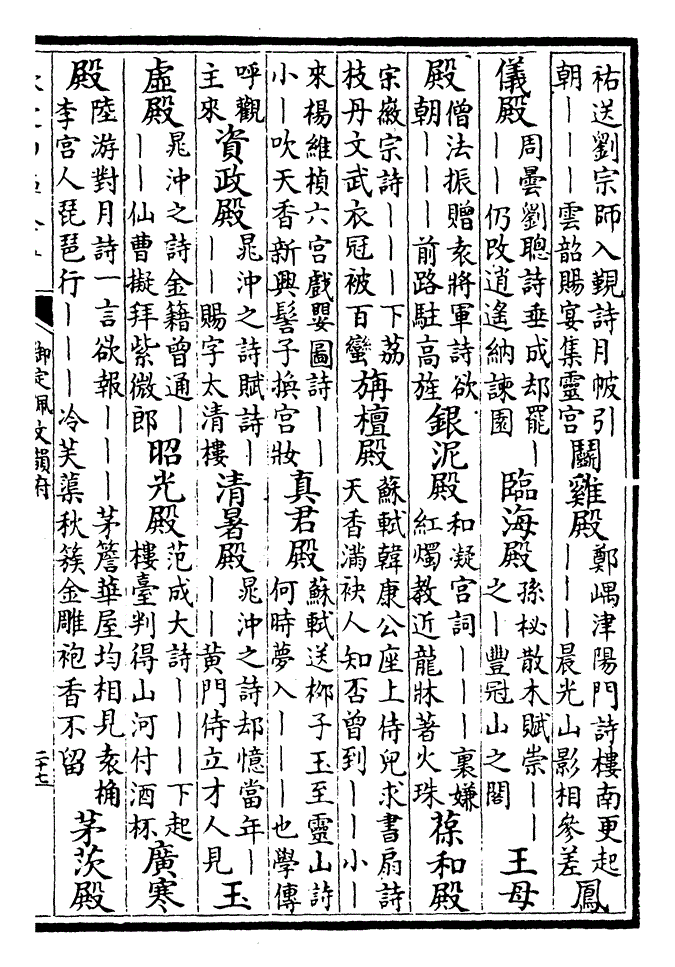 祐送劉宗師入覲詩月帔引
朝｜｜｜雲韶賜宴集靈宮
鬭雞殿
鄭嵎津陽門詩樓南更起
｜｜｜晨光山影相參差
鳳
儀殿
周曇劉聰詩垂成却罷｜
｜｜仍改逍遙納諫園
臨海殿
孫柲散木賦崇｜｜
之｜豐冠山之閣
王母
殿
僧法振贈袁將軍詩欲
朝｜｜｜前路駐高旌
銀泥殿
和凝宮詞｜｜｜裏嫌
紅燭教近龍牀著火珠
葆和殿
宗徽宗詩｜｜｜下荔
枝丹文武衣冠被百蠻
旃檀殿
蘇軾韓康公座上侍兒求書扇詩
天香滿袂人知否曾到｜｜小｜
來楊維楨六宮戲嬰圖詩｜｜
小｜吹天香新興髻子換宮妝
真君殿
蘇軾送栁子玉至靈山詩
何時夢入｜｜｜也學傳
呼觀
主來
資政殿
晁沖之詩賦詩｜
｜｜賜字太清樓
清暑殿
晁沖之詩却憶當年｜
｜｜黃門侍立才人見
玉
虛殿
晁沖之詩金籍曾通｜
｜｜仙曹擬拜紫微郎
昭光殿
范成大詩｜｜｜下起
樓臺判得山河付酒杯
廣寒
殿
陸游對月詩一言欲報｜｜｜茅簷華屋均相見袁桷
李宮人琵琶行｜｜｜冷芙蕖秋簇金雕袍香不留
茅茨殿
御定佩文韻府
二十七